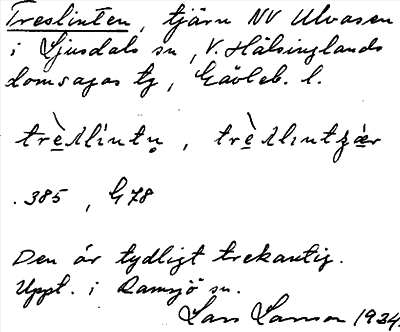 Treslinten, tjärn NV Ulvasen
i Ljusdals sn, V. Hälsinglands
domsagas tg, Gävleb. l.
trèslintn̥, trèslintʒær
.385, G78
Den är tydligt trekantig.
Uppt. i Ramsjö sn.
Lars Larsson 1934.